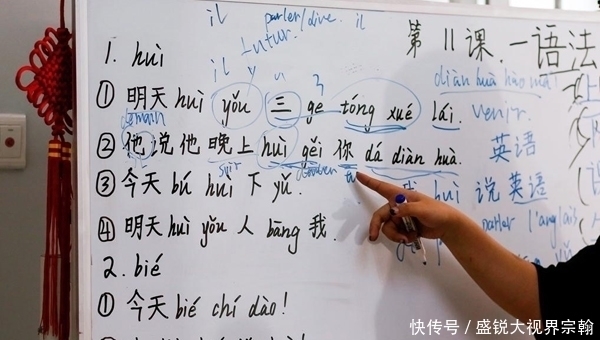 il parler/dire. il
futur.
第11课.一语法
1. huì
il y a
diàn huà hào mǎ!
① 明天 huì yǒu 三 ge tóng xué lái. venir.
demain
② 他说他晚上 huì gěi 你 dá diàn huà. 英语
soir
③ 今天 bú huì 下 yǔ. huì 说英语
parler l'anglais
④ 明天 huì yǒu 人 bāng 我.
2. bié
① 今天 bié chí dào!
快传号/盛锐大视界宗翰